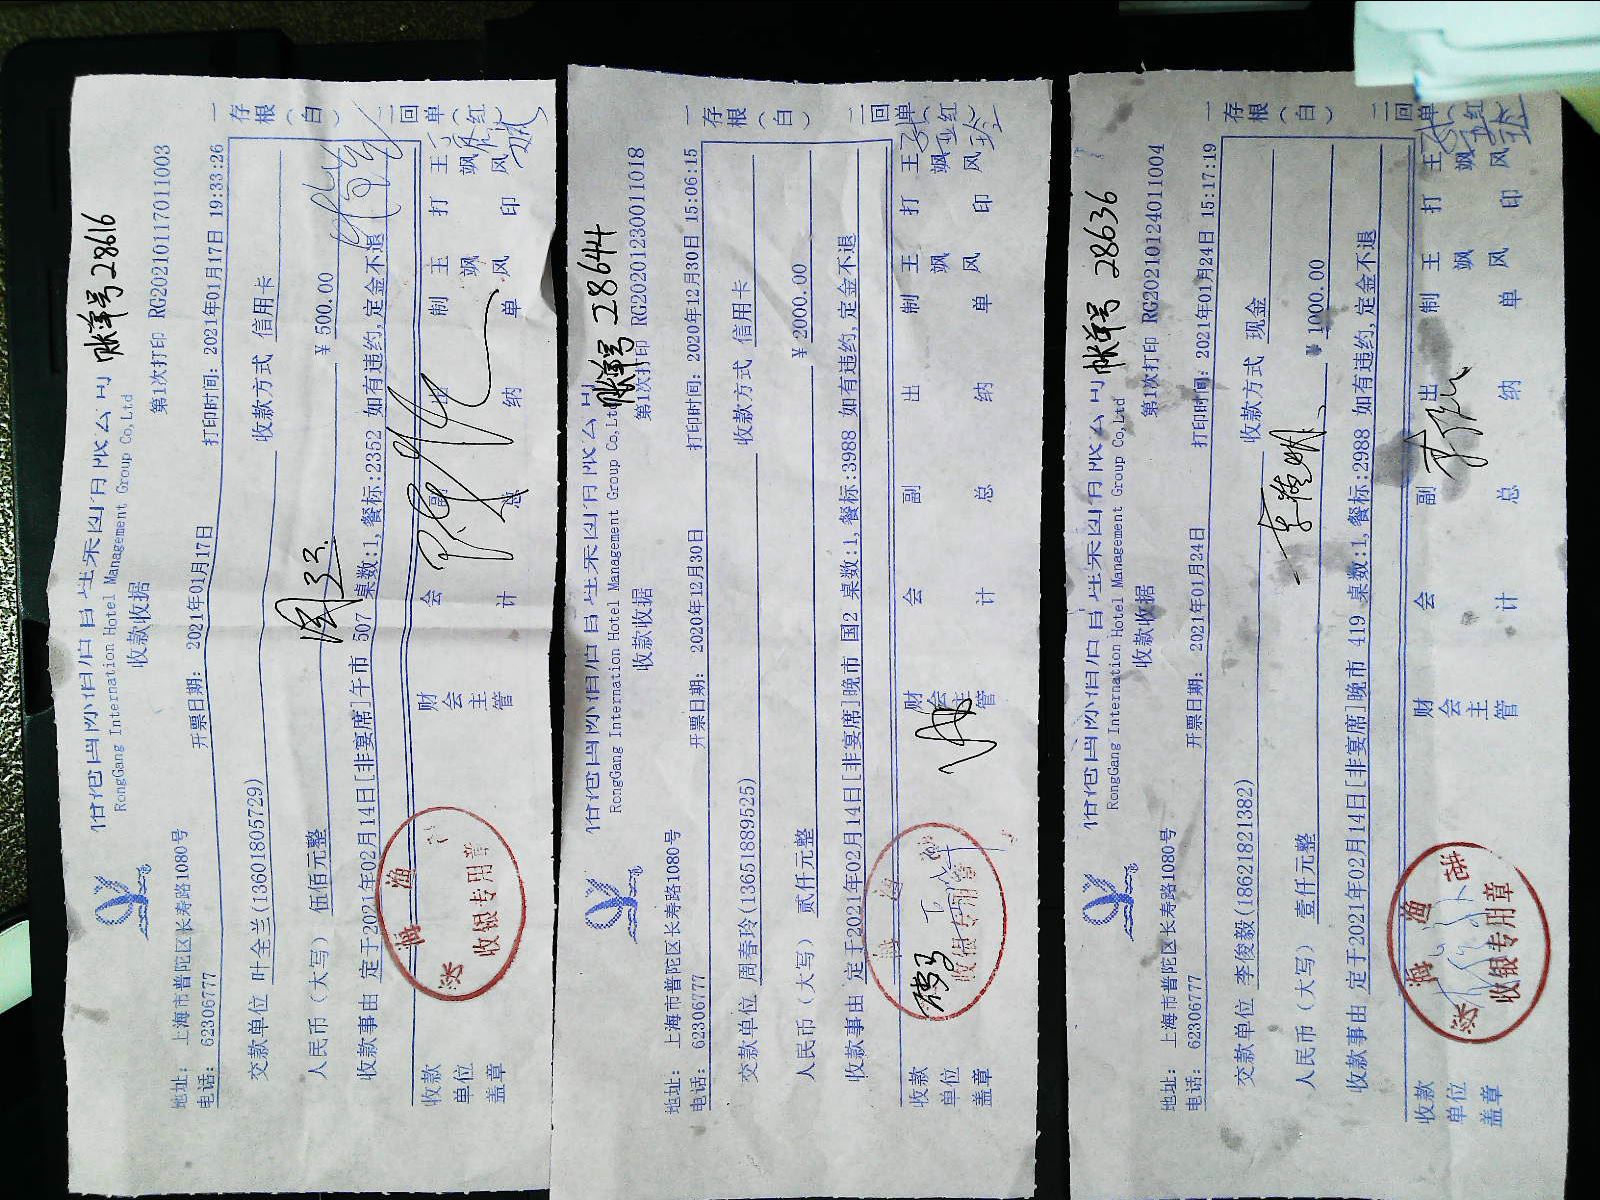 帐单号 28616
RongGang Internation Hotel Management Group Co,Ltd
收款收据
第1次打印 RG20210117011003
地址: 上海市普陀区长寿路1080号
电话: 62306777
开票日期: 2021年01月17日
打印时间: 2021年01月17日 19:33:26
交款单位 叶全兰(13601805729)
收款方式 信用卡
人民币（大写） 伍佰元整
￥500.00
收款事由 定于2021年02月14日[非宴席]午市 507 桌数:1,餐标:2352 如有违约,定金不退
收款单位盖章
财会主管
会计
副总
出纳
制单
王飒风
打印
王飒风
一存根（白）
二回单（红）
收银专用章
帐单号 28644
RongGang Internation Hotel Management Group Co,Ltd
收款收据
第1次打印 RG20201230011018
地址: 上海市普陀区长寿路1080号
电话: 62306777
开票日期: 2020年12月30日
打印时间: 2020年12月30日 15:06:15
交款单位 周春玲(13651889525)
收款方式 信用卡
人民币（大写） 贰仟元整
￥2000.00
收款事由 定于2021年02月14日[非宴席]晚市 国2 桌数:1,餐标:3988 如有违约,定金不退
收款单位盖章
财会主管
会计
副总
出纳
制单
王飒风
打印
王飒风
一存根（白）
二回单（红）
收银专用章
帐单号 28636
RongGang Internation Hotel Management Group Co,Ltd
收款收据
第1次打印 RG20210124011004
地址: 上海市普陀区长寿路1080号
电话: 62306777
开票日期: 2021年01月24日
打印时间: 2021年01月24日 15:17:19
交款单位 李俊毅(18621821382)
收款方式 现金
人民币（大写） 壹仟元整
￥1000.00
收款事由 定于2021年02月14日[非宴席]晚市 419 桌数:1,餐标:2988 如有违约,定金不退
收款单位盖章
财会主管
会计
副总
出纳
制单
王飒风
打印
王飒风
一存根（白）
二回单（红）
收银专用章